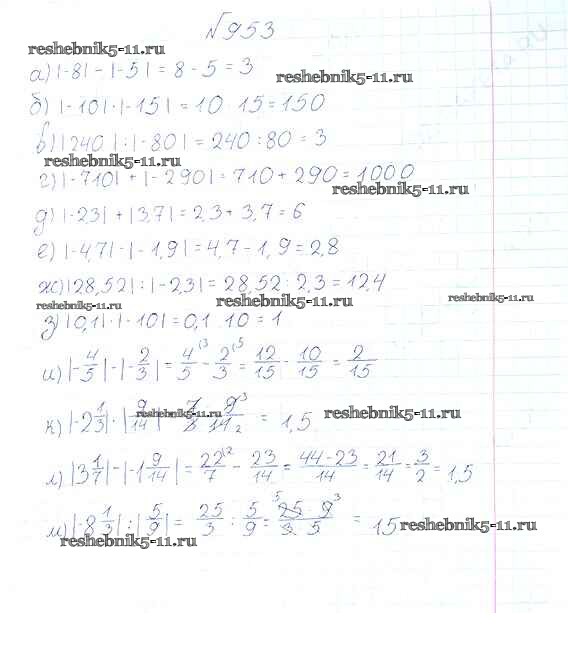 №953
reshebnik5-11.ru
а) |-8| - |-5| = 8 - 5 = 3
reshebnik5-11.ru
б) |-10| · |-15| = 10 · 15 = 150
в) |240| : |-80| = 240 : 80 = 3
reshebnik5-11.ru
г) |-710| + |-290| = 710 + 290 = 1000
reshebnik5-11.ru
д) |-2,3| + |3,7| = 2,3 + 3,7 = 6
е) |-4,7| - |-1,9| = 4,7 - 1,9 = 2,8
ж) |28,52| : |-2,3| = 28,52 : 2,3 = 12,4
reshebnik5-11.ru reshebnik5-11.ru reshebnik5-11.ru
з) |0,1| · |-10| = 0,1 · 10 = 1
и) |-4/5| - |-2/3| = 4/5 - 2/3 = 12/15 - 10/15 = 2/15
к) |-2 1/3| · |9/14| = 7/3 · 9/14 = 1,5
reshebnik5-11.ru reshebnik5-11.ru
л) |3 1/7| - |-1 9/14| = 22/7 - 23/14 = 44-23/14 = 21/14 = 3/2 = 1,5
м) |-8 1/3| : |5/9| = 25/3 : 5/9 = 25·9/3·5 = 15
reshebnik5-11.ru
reshebnik5-11.ru